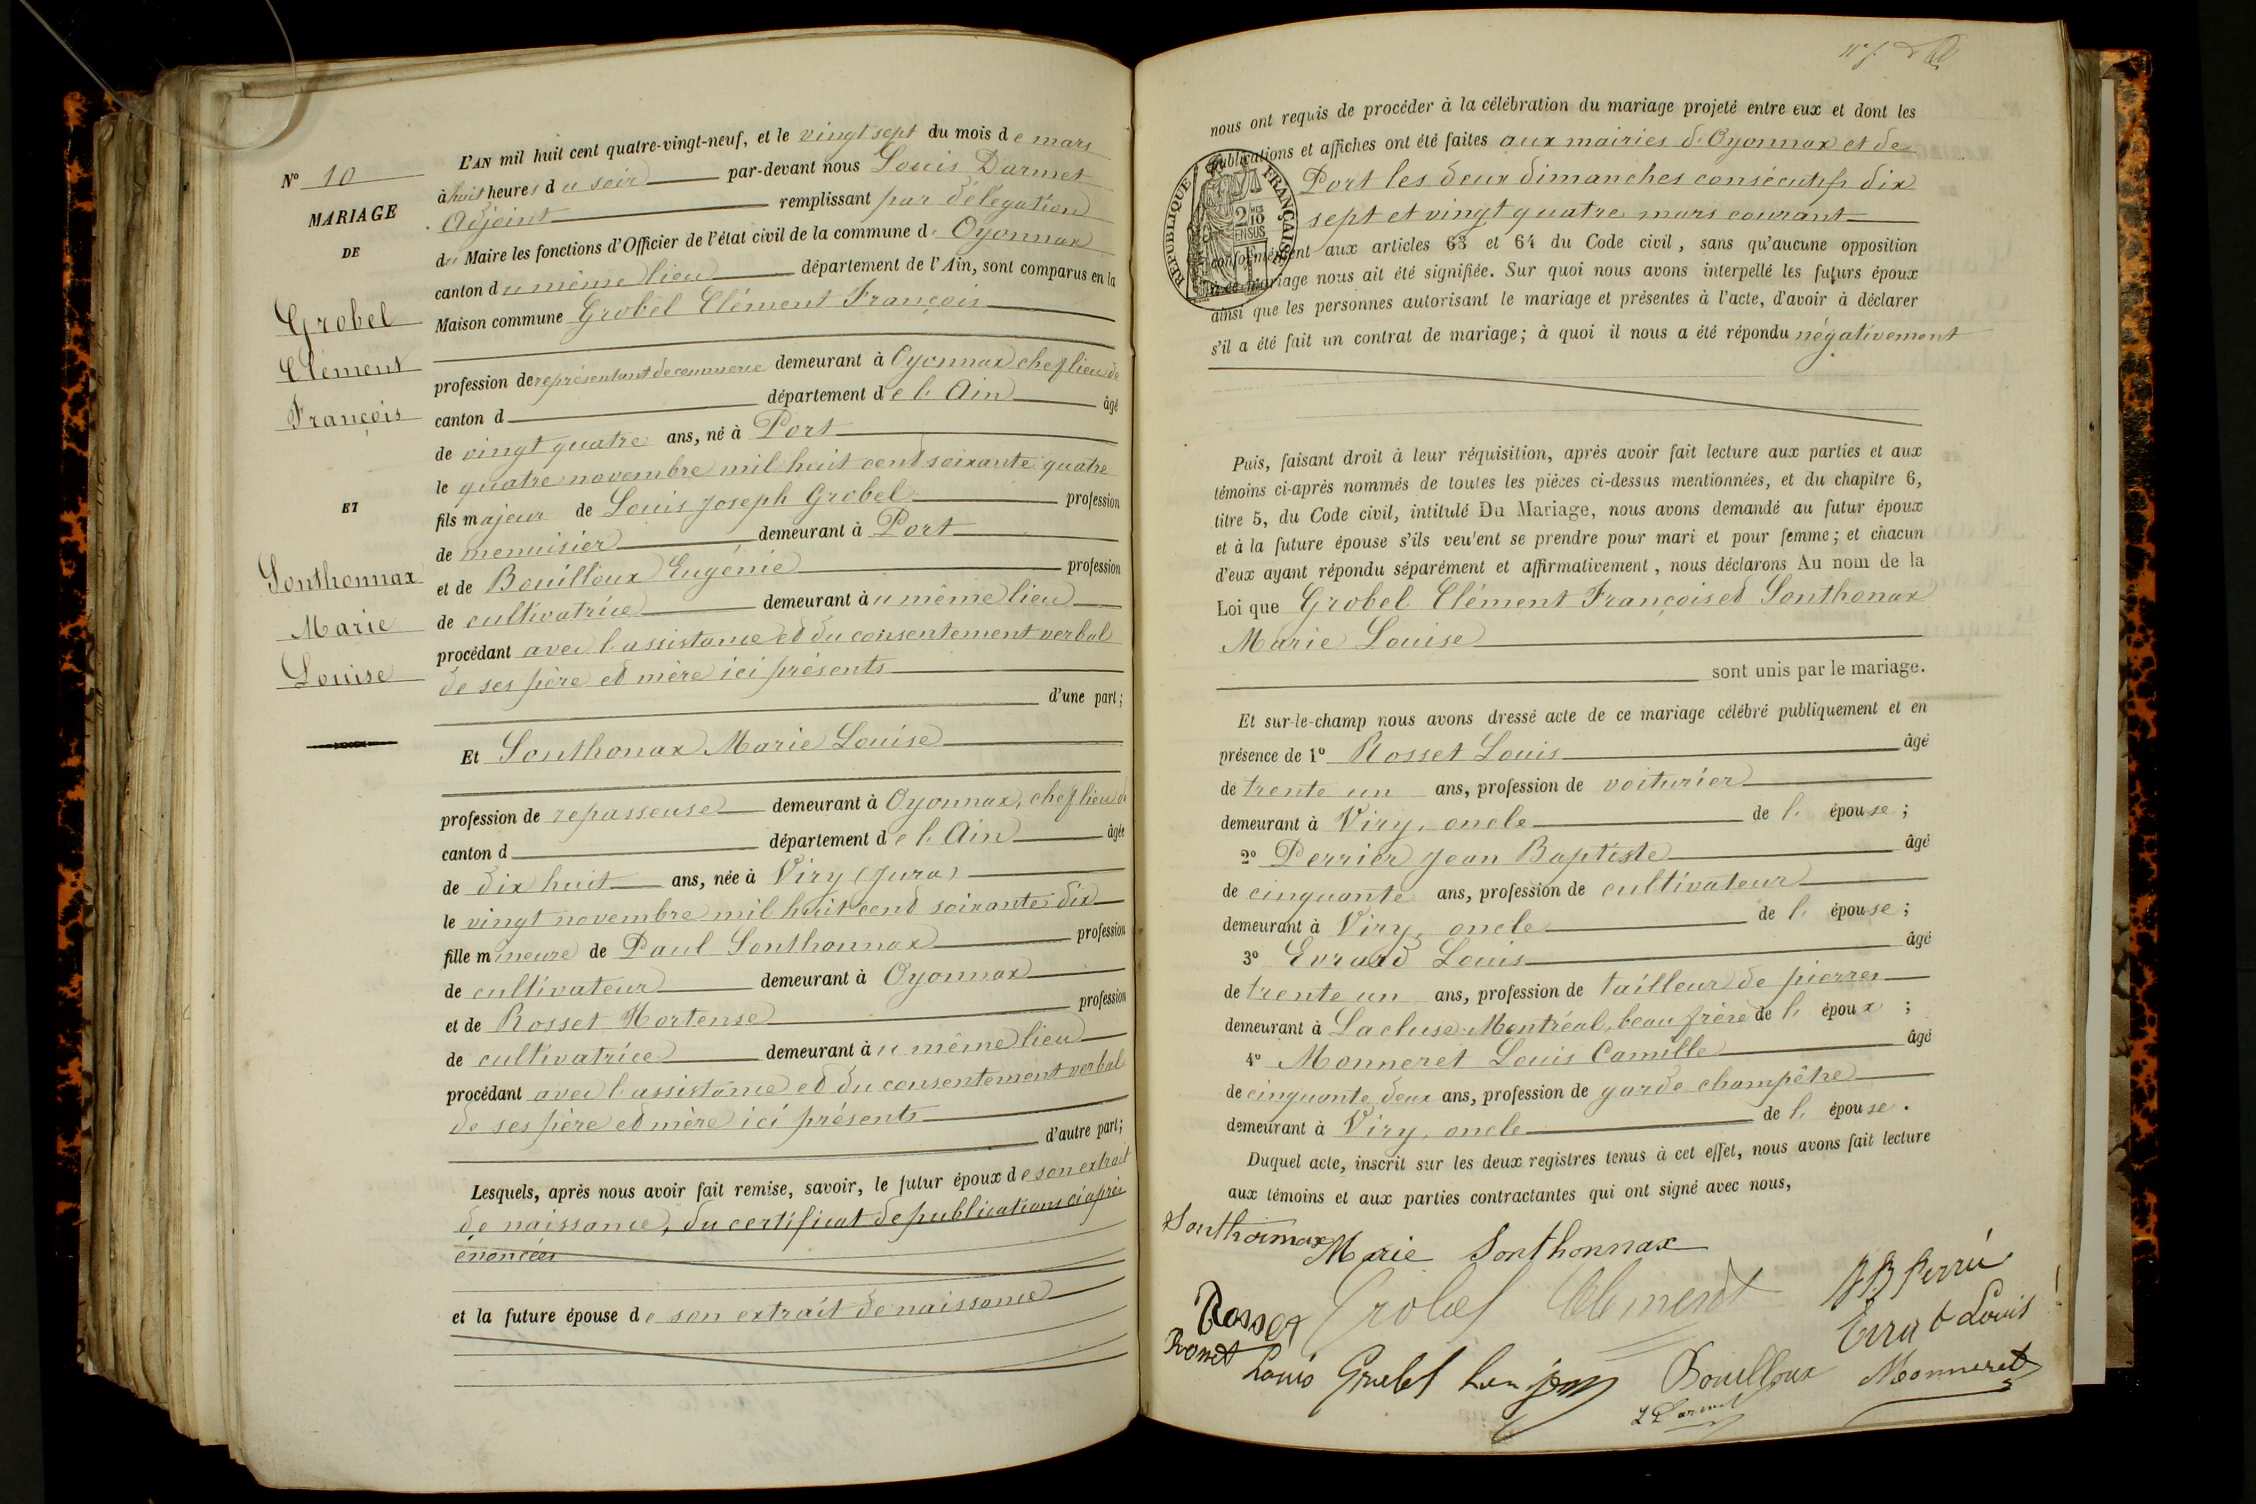 L'AN mil huit cent quatre-vingt-neuf, et le vingt sept du mois de mars
N° 10
à huit heures du soir par-devant nous Louis Darmet
MARIAGE
Adjoint remplissant par délégation
DE
du Maire les fonctions d'Officier de l'état civil de la commune d'Oyonnax
canton du même lieu département de l'Ain, sont comparus en la
Grobel
Maison commune Grobel Clément François
Clément
profession de représentant de commerce demeurant à Oyonnax chef lieu de
François
canton d département de l'Ain âgé
de vingt quatre ans, né à Port
le quatre novembre mil huit cent soixante quatre
ET
fils majeur de Louis Joseph Grobel profession
de menuisier demeurant à Port
Sonthonnax
et de Bouilloux Eugénie profession
Marie
de cultivatrice demeurant au même lieu
procédant avec l'assistance et du consentement verbal
Louise
de ses père et mère ici présents
d'une part;
Et Sonthonax Marie Louise
profession de repasseuse demeurant à Oyonnax, chef lieu de
canton d département de l'Ain âgée
de dix huit ans, née à Viry (Jura)
le vingt novembre mil huit cent soixante dix
fille mineure de Paul Sonthonnax profession
de cultivateur demeurant à Oyonnax
et de Rosset Hortense profession
de cultivatrice demeurant au même lieu
procédant avec l'assistance et du consentement verbal
de ses père et mère ici présents
d'autre part;
Lesquels, après nous avoir fait remise, savoir, le futur époux de son extrait
de naissance, du certificat de publications ci après
énoncées
et la future épouse de son extrait de naissance
nous ont requis de procéder à la célébration du mariage projeté entre eux et dont les
publications et affiches ont été faites aux mairies d'Oyonnax et de
Port les deux dimanches consécutifs dix
sept et vingt quatre mars courant
RÉPUBLIQUE FRANÇAISE
2/10 EN SUS
conformément aux articles 63 et 64 du Code civil, sans qu'aucune opposition
à ce mariage nous ait été signifiée. Sur quoi nous avons interpellé les futurs époux
ainsi que les personnes autorisant le mariage et présentes à l'acte, d'avoir à déclarer
s'il a été fait un contrat de mariage; à quoi il nous a été répondu négativement
Puis, faisant droit à leur réquisition, après avoir fait lecture aux parties et aux
témoins ci-après nommés de toutes les pièces ci-dessus mentionnées, et du chapitre 6,
titre 5, du Code civil, intitulé Du Mariage, nous avons demandé au futur époux
et à la future épouse s'ils veulent se prendre pour mari et pour femme; et chacun
d'eux ayant répondu séparément et affirmativement, nous déclarons Au nom de la
Loi que Grobel Clément François et Sonthonax
Marie Louise
sont unis par le mariage.
Et sur-le-champ nous avons dressé acte de ce mariage célébré publiquement et en
présence de 1° Rosset Louis âgé
de trente un ans, profession de voiturier
demeurant à Viry, oncle de l'épouse;
2° Perrier Jean Baptiste âgé
de cinquante ans, profession de cultivateur
demeurant à Viry, oncle de l'épouse;
3° Evrard Louis âgé
de trente un ans, profession de tailleur de pierres
demeurant à La cluse-Montréal, beau frère de l'époux;
4° Monneret Louis Camille âgé
de cinquante deux ans, profession de garde champêtre
demeurant à Viry, oncle de l'épouse.
Duquel acte, inscrit sur les deux registres tenus à cet effet, nous avons fait lecture
aux témoins et aux parties contractantes qui ont signé avec nous,
Sonthonnax Marie Sonthonnax
Rosset Grobel Clément
Louis
Bouilloux Monneret
L Darmet